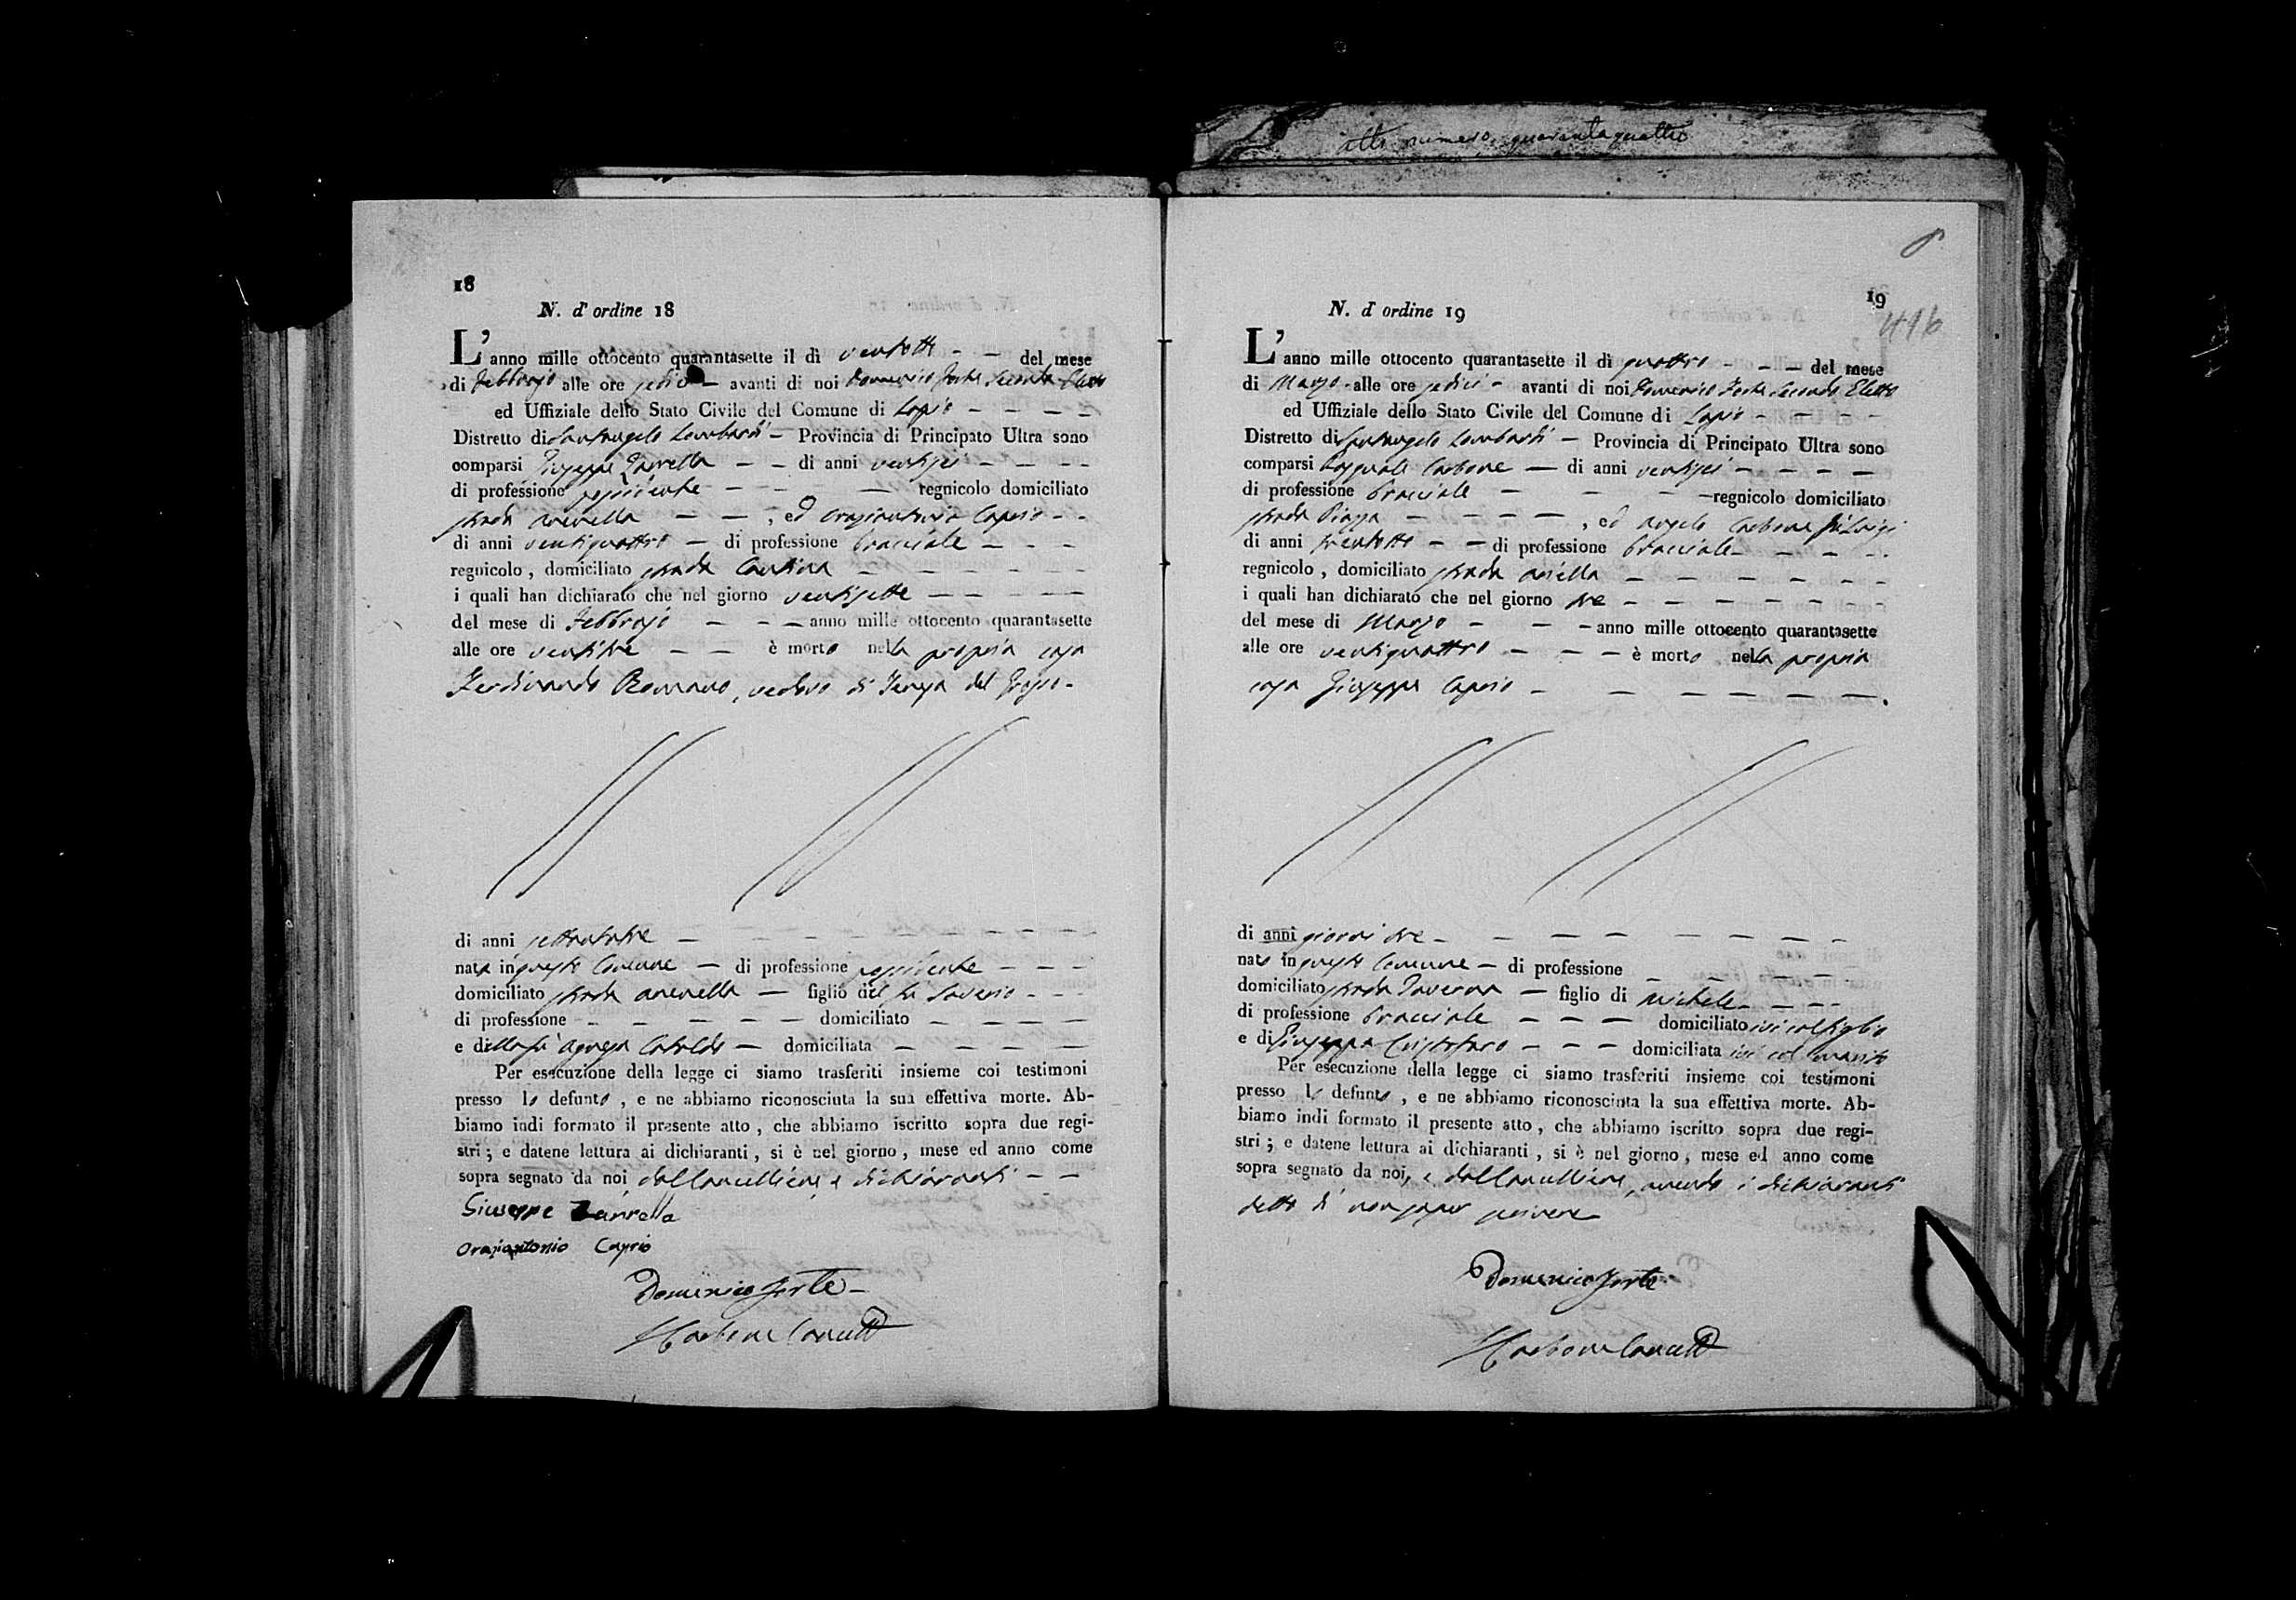 atto numero quarantaquattro
18
N. d'ordine 18
L'anno mille ottocento quarantasette il dì ventotto - - del mese
di Febbrajo alle ore sedici - avanti di noi Domenico Forte Secondo Eletto
ed Uffiziale dello Stato Civile del Comune di Lapio - - - -
Distretto di Santangelo Lombardi - Provincia di Principato Ultra sono
comparsi Giuseppe Zarrella - - di anni ventisei - - - -
di professione possidente - - - - regnicolo domiciliato
strada arenella - - , ed Oraziantonio Caprio - -
di anni ventiquattro - di professione bracciale - - -
regnicolo , domiciliato strada Cantina - - - - - -
i quali han dichiarato che nel giorno ventisette - - - - -
del mese di Febbrajo - - - anno mille ottocento quarantasette
alle ore ventitre - - è morto nella propria casa
Ferdinando Romano, vedovo di Teresa del Grosso -
di anni settantatre - - - - - - - - -
nato in questo Comune - di professione possidente - - -
domiciliato strada arenella - figlio del fu Saverio - - -
di professione - - - - - domiciliato - - - -
e della fu Agnesa Cataldo - domiciliata - - - - -
Per esecuzione della legge ci siamo trasferiti insieme coi testimoni
presso lo defunto , e ne abbiamo riconosciuta la sua effettiva morte. Ab-
biamo indi formato il presente atto , che abbiamo iscritto sopra due regi-
stri ; e datene lettura ai dichiaranti , si è nel giorno , mese ed anno come
sopra segnato da noi dal Cancelliere, e dichiaranti - -
Giuseppe Zarrella
Oraziantonio Caprio
Domenico Forte -
Carbone Cancell
19
416
N. d'ordine 19
L'anno mille ottocento quarantasette il dì quattro - - - del mese
di Marzo - alle ore sedici - avanti di noi Domenico Forte Secondo Eletto
ed Uffiziale dello Stato Civile del Comune di Lapio - - - -
Distretto di Santangelo Lombardi - Provincia di Principato Ultra sono
comparsi Pasquale Carbone - di anni ventisei - - - -
di professione bracciale - - - regnicolo domiciliato
strada Piazza - - - - , ed Angelo Carbone di Luigi
di anni trentotto - - di professione bracciale - - - -
regnicolo , domiciliato strada - - - - - -
i quali han dichiarato che nel giorno tre - - - - - - -
del mese di Marzo - - - anno mille ottocento quarantasette
alle ore ventiquattro - - - è morto nella propria
casa Giuseppe Caprio - - - - - - .
di anni giorni tre - - - - - - - - -
nato in questo Comune - di professione - - - -
domiciliato strada Taverna - figlio di Michele - - -
di professione bracciale - - - domiciliato ivi col figlio
e di Giuseppa Cristofaro - - - domiciliata ivi col marito
Per esecuzione della legge ci siamo trasferiti insieme coi testimoni
presso lo defunto , e ne abbiamo riconosciuta la sua effettiva morte. Ab-
biamo indi formato il presente atto , che abbiamo iscritto sopra due regi-
stri ; e datene lettura ai dichiaranti , si è nel giorno , mese ed anno come
sopra segnato da noi, e dal Cancelliere, avendo i dichiaranti
detto di non saper scrivere
Domenico Forte
Carbone Cancell